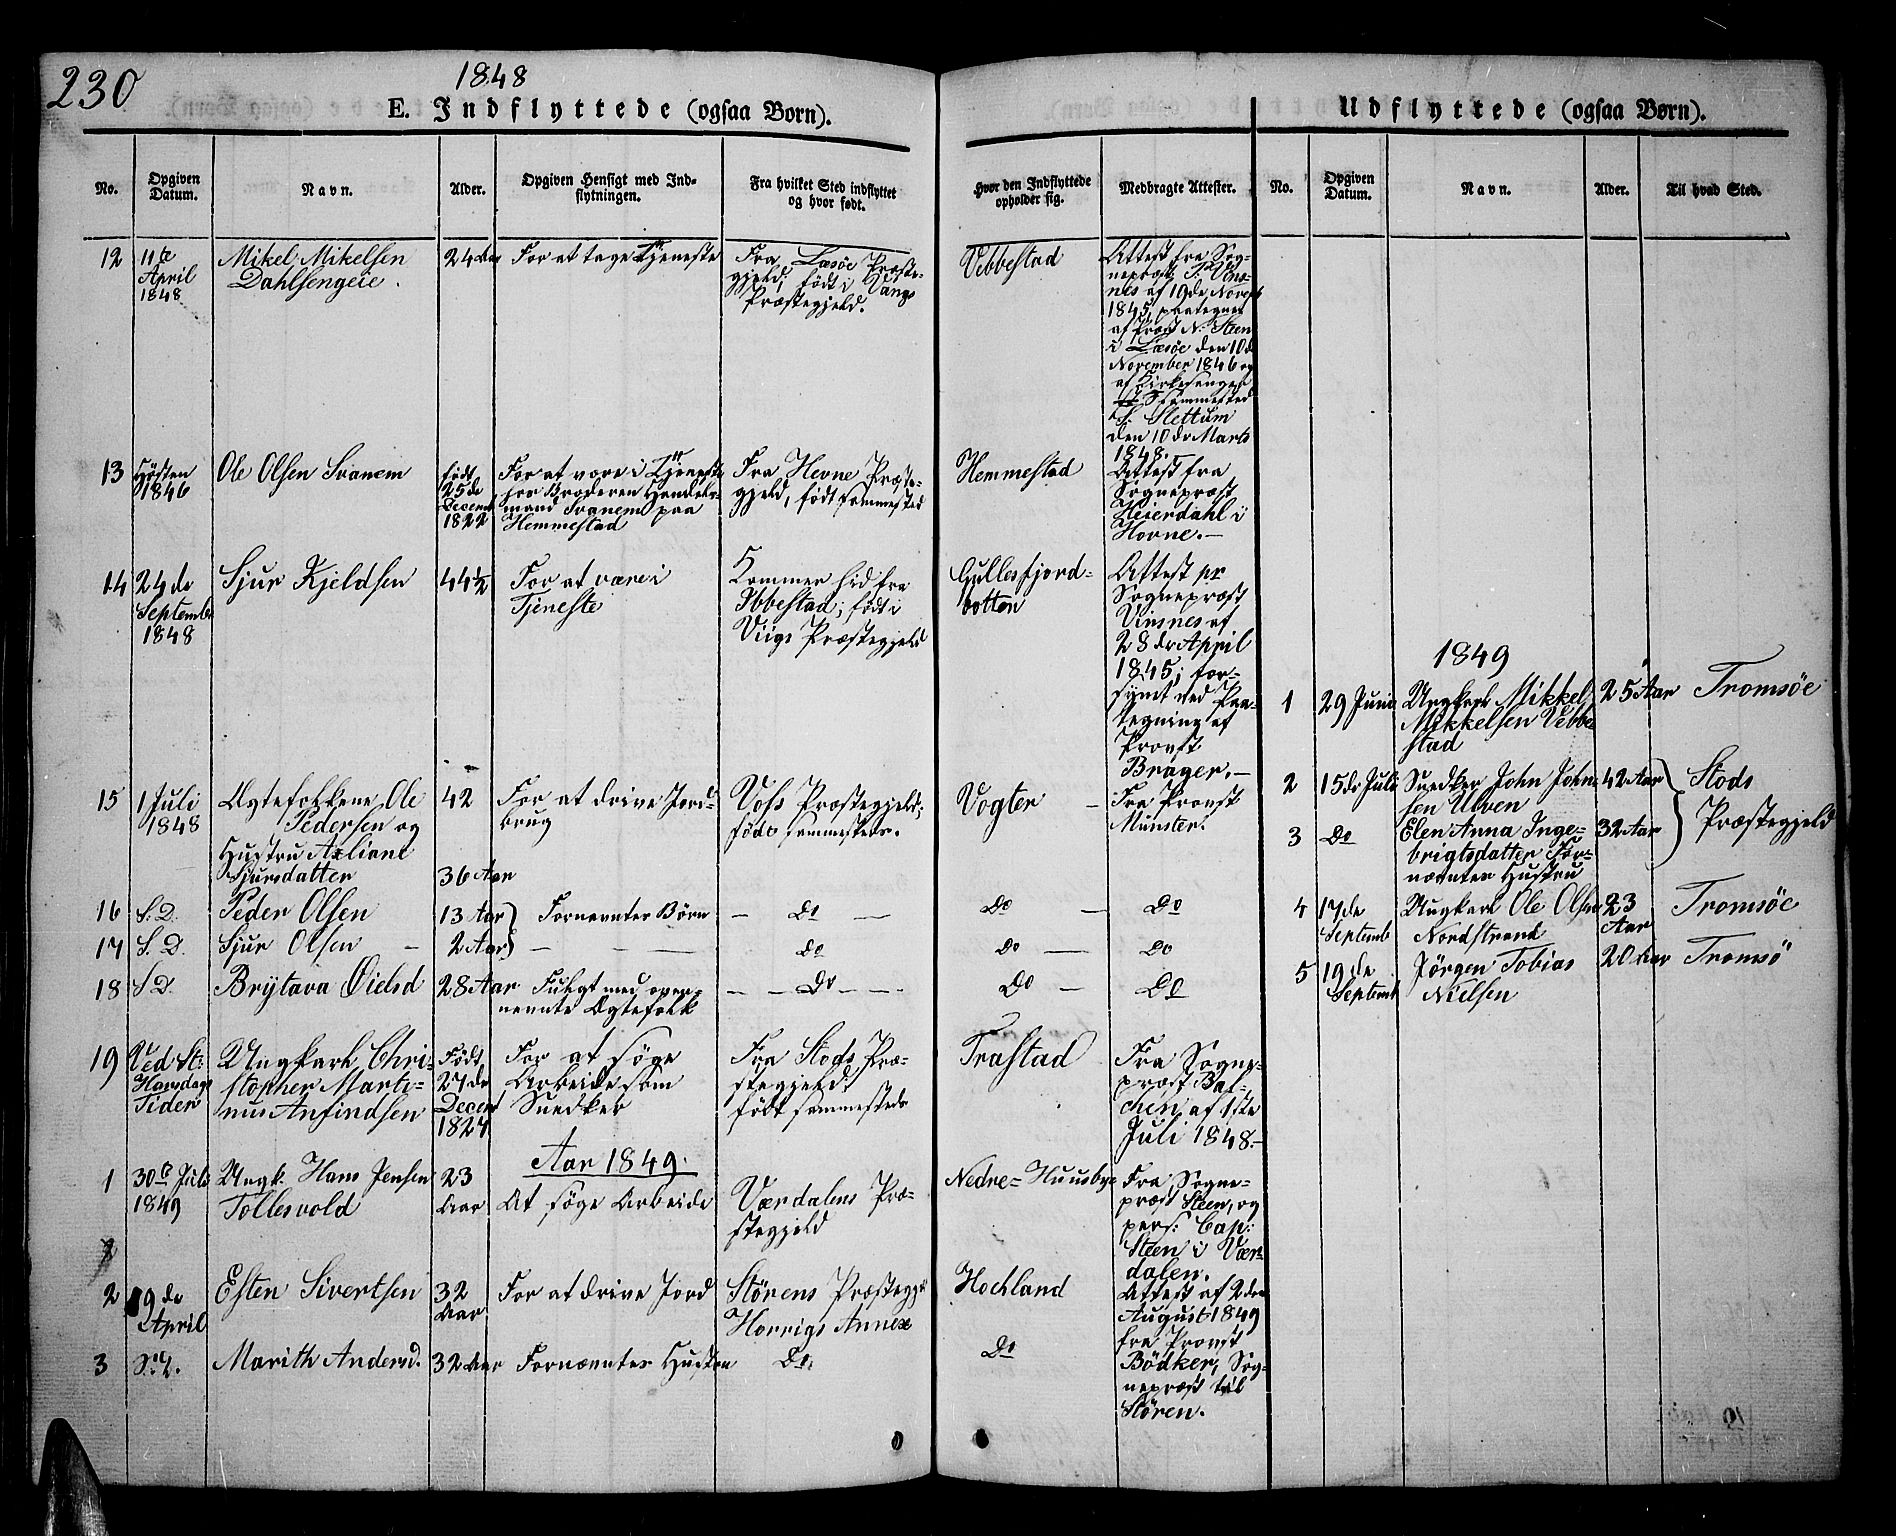 230
1848
E. Indflyttede (ogsaa Børn).
No.
Opgiven Datum.
Navn.
Alder.
Opgiven Hensigt med Ind-
flytningen.
Fra hvilket Sted indflyttet
og hvor født.
Hvor den Indflyttede
opholder sig.
Medbragte Attester.
12
11te
April
1848
Mikel Mikelsen
Dahlsengeie.
24 Aar
For at tage Tjeneste
Fra Læsøe Præste-
gjeld, født i Vangs
Præstegjeld.
Vebbestad
Attest fra Sog-
nepræst
af 19de Novemb
1845, paategnet
af Præst N. Steen
i Læsøe den 10de
November 1846 og
af Kirkesanger
Slettum
den 10de Marts
1848.
13
Høsten
1846
Ole Olsen Svanem
født
25de
Decemb
1822
For at være i Tjeneste
hos Broderen Handels-
mand Svanem paa
Hemmestad
Fra Hevne Præste-
gjeld, født sammested
Hemmestad
Attest fra
Sognepræst
Heierdahl i
Hevne.-
14
24de
Septembr
1848
Sjur Kjeldsen
44½
For at være i
Tjeneste
Kommer hid fra
Ibbestad; født i
Viigs Præstegjeld
Gullesfjord-
botten
Attest pr
Sognepræst
Vinsnes af
28de April
1845; for-
synet ved Paa-
tegning af
Provst
Brager.-
15
1 Juli
1848
Ægtefolkene Ole
Pedersen og
Hustru Axliane
Sjursdatter
42
36 Aar
For at drive Jord-
brug
Voss Præstegjeld;
føde sammesteds.
Vogter -
Fra Provst
Munster.
16
S.D.
Peder Olsen
13 Aar
Fornevntes Børn
- Do -
Do -
Do
17
S.D.
Sjur Olsen -
2 Aar
- - -
Do
Do -
Do
18
S D.
Brÿtava Øielsd
28 Aar
Fulgt med oven-
nevnte Ægtefolk
- - Do - - -
Do -
Do
19
Ved St:
Hansdags
Tider
Ungkarl Chri-
stopher Marti-
nus Anfindsen
Født
27de
Decem
1827
For at søge
Arbeide som
Snedker
Fra Stods Præ-
stegjeld
født sammesteds
Trastad
Fra Sogne-
præst
af 1ste
Juli 1848.-
Aar 1849.
1
30te Juli
1849
Ungk. Hans Jensen
Tollesvold
23
Aar
At søge Arbeide
Værdalens Præ-
stegjeld
Nedre=Huusbye
Fra Sogne-
præst Steen, og
pers: Cap:
Steen i Vær-
dalen.
2
2
9de
April
Esten Sivertsen
32
Aar
For at drive Jord
Størens Præstegje
Horrigs Annex
Hochland
Attest af 2den
August 1849
fra Provst
Bödker, Sog-
nepræst til
Støren.
3
Marith Andersd.
32 Aar
Fornævntes Hustru
Do
Do
Udflyttede (ogsaa Børn).
No.
Opgiven Datum.
Navn.
Alder.
Til hvad Sted.
1849
1
29 Juni
Ungkarl Mikkel
Mikkelsen Vebbe-
stad
25 Aar
Tromsøe
2
15de Juli
Snedker John John-
sen Ulven
42 Aar
Stods
Præstegjeld
3
Do
Elen Anna Inge-
brigtsdatter For-
nævntes Hustru
32 Aar
4
17de
Septemb
Ungkarl Ole Olsen
Nordstrand
23
Aar
Tromsøe
5
19de
Septemb
Jørgen Tobias
Nielsen
20 Aar
Tromsø